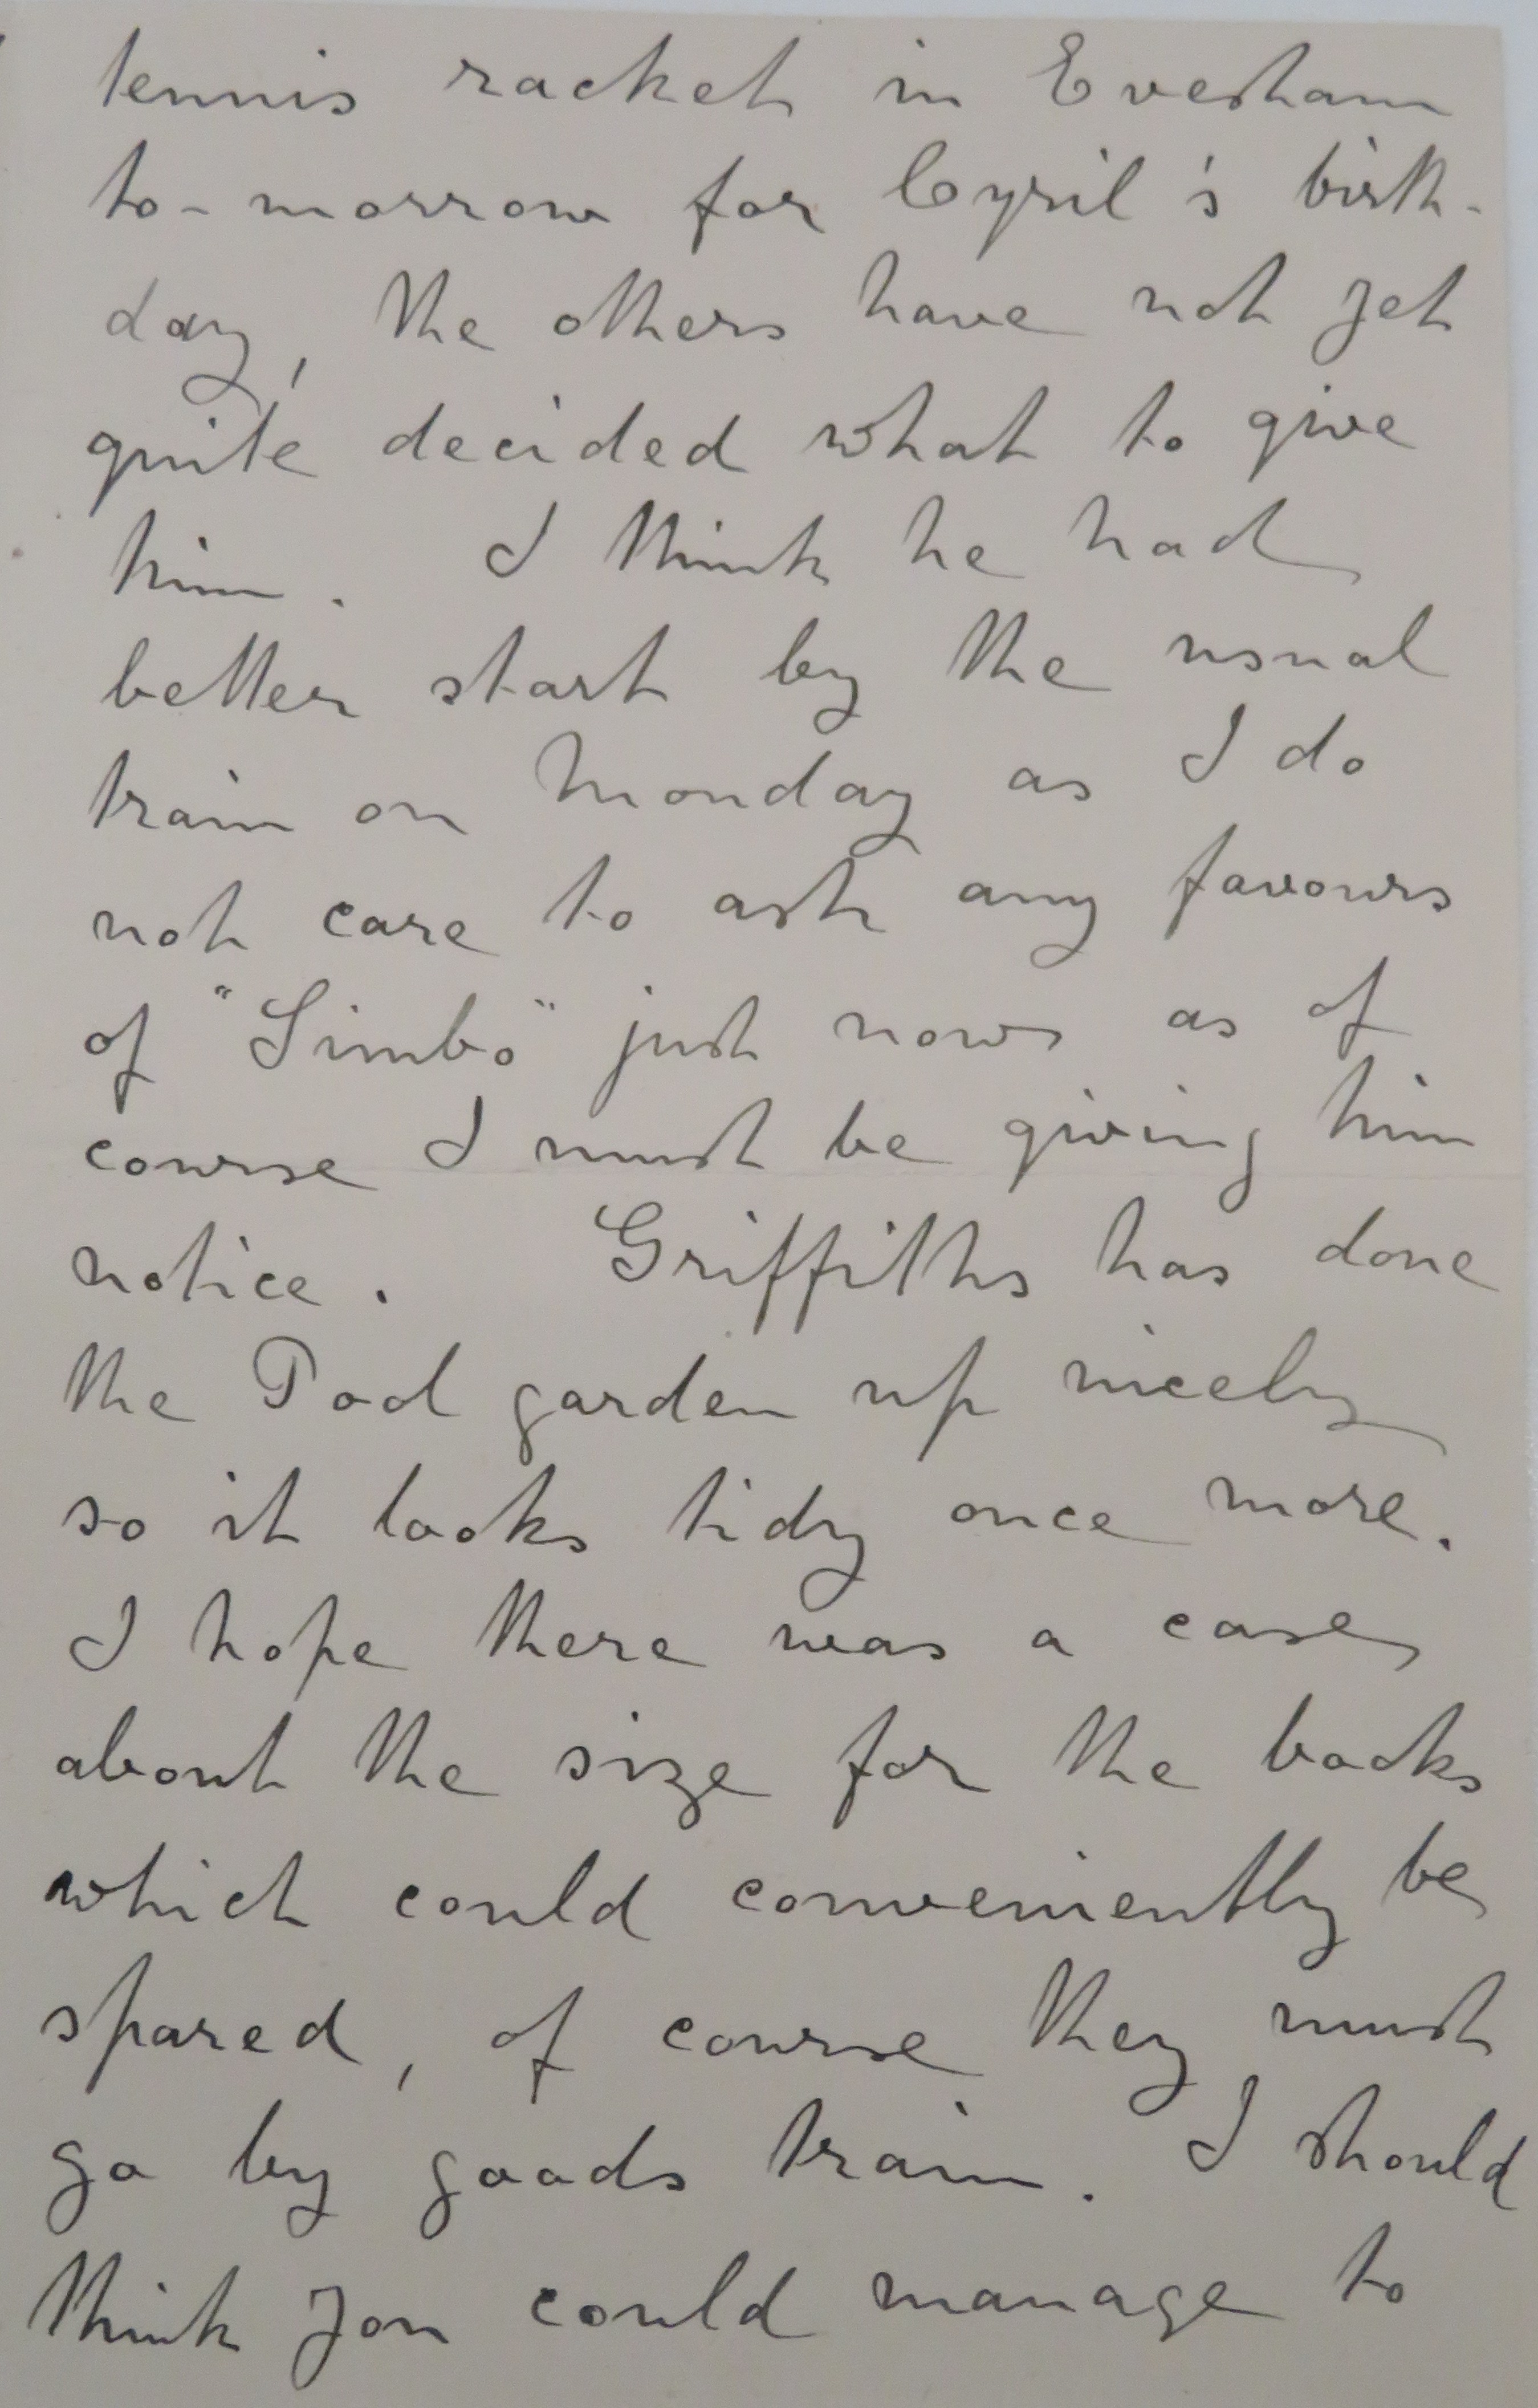 tennis racket in Evesham
to-morrow for Cyril's birth-
day, the others have not yet
quite decided what to give
him. I think he had
better start by the usual
train on Monday as I do
not care to ask any favours
of "Simbo" just now as of
course I must be giving him
notice. Griffiths has done
the Pod garden up nicely
so it looks tidy once more.
I hope there was a case
about the size for the books
which could conveniently be
spared, of course they must
go by goods train. I should
think you could manage to